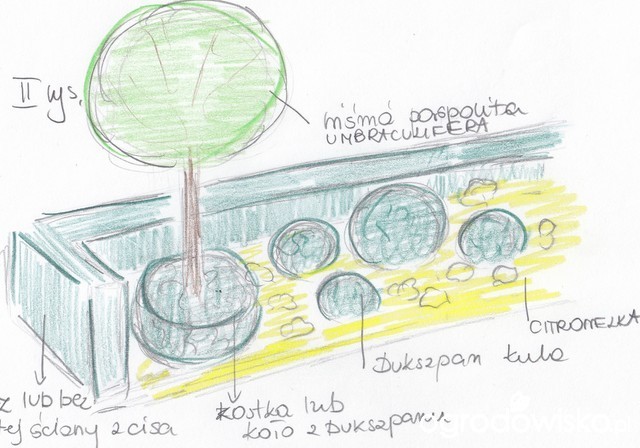 II rys.
pospolita
UMBRACULIFERA
CITRONELKA
Bukszpan kula
z lub bez
tej ściany z cisa
kostka lub
koło z Bukszpanu
ogrodowisko